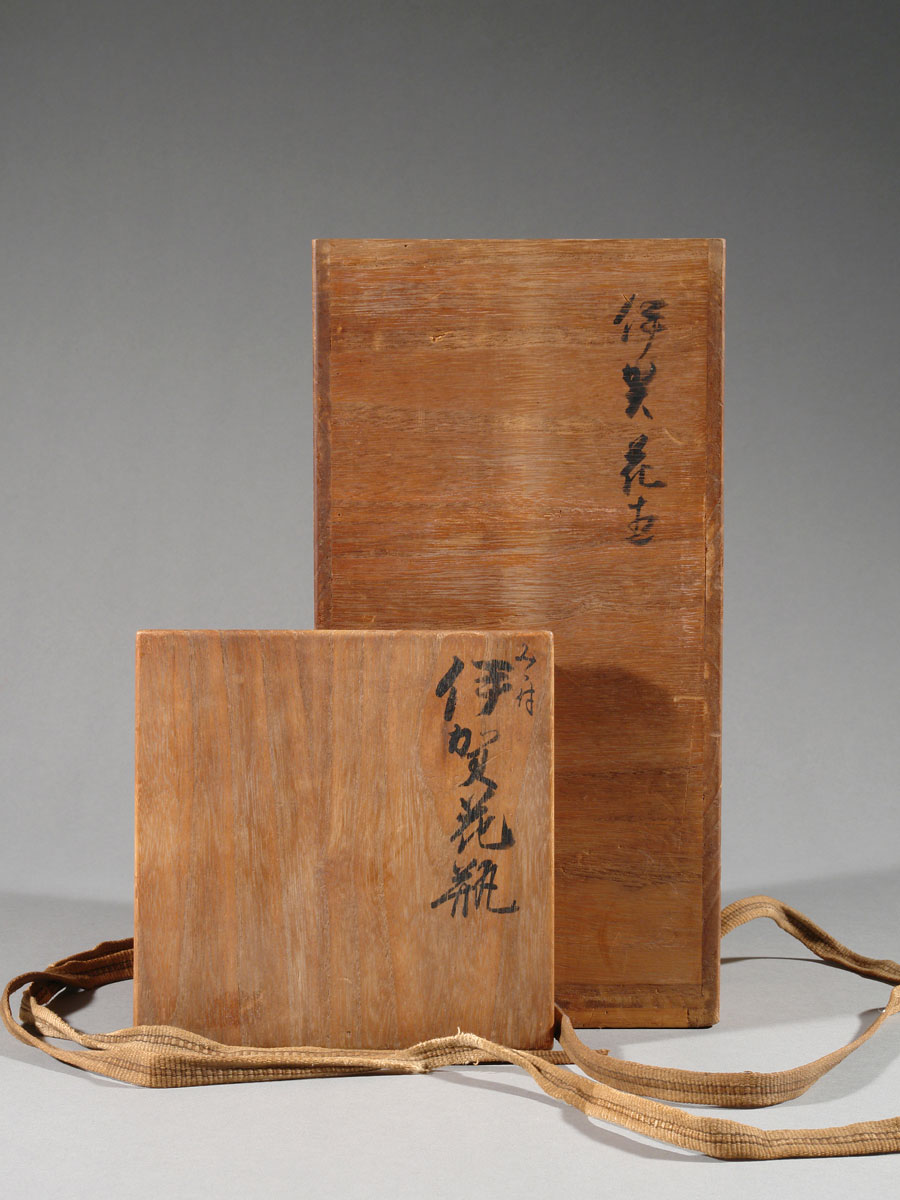 伊賀花
みゝ付
伊賀花瓶